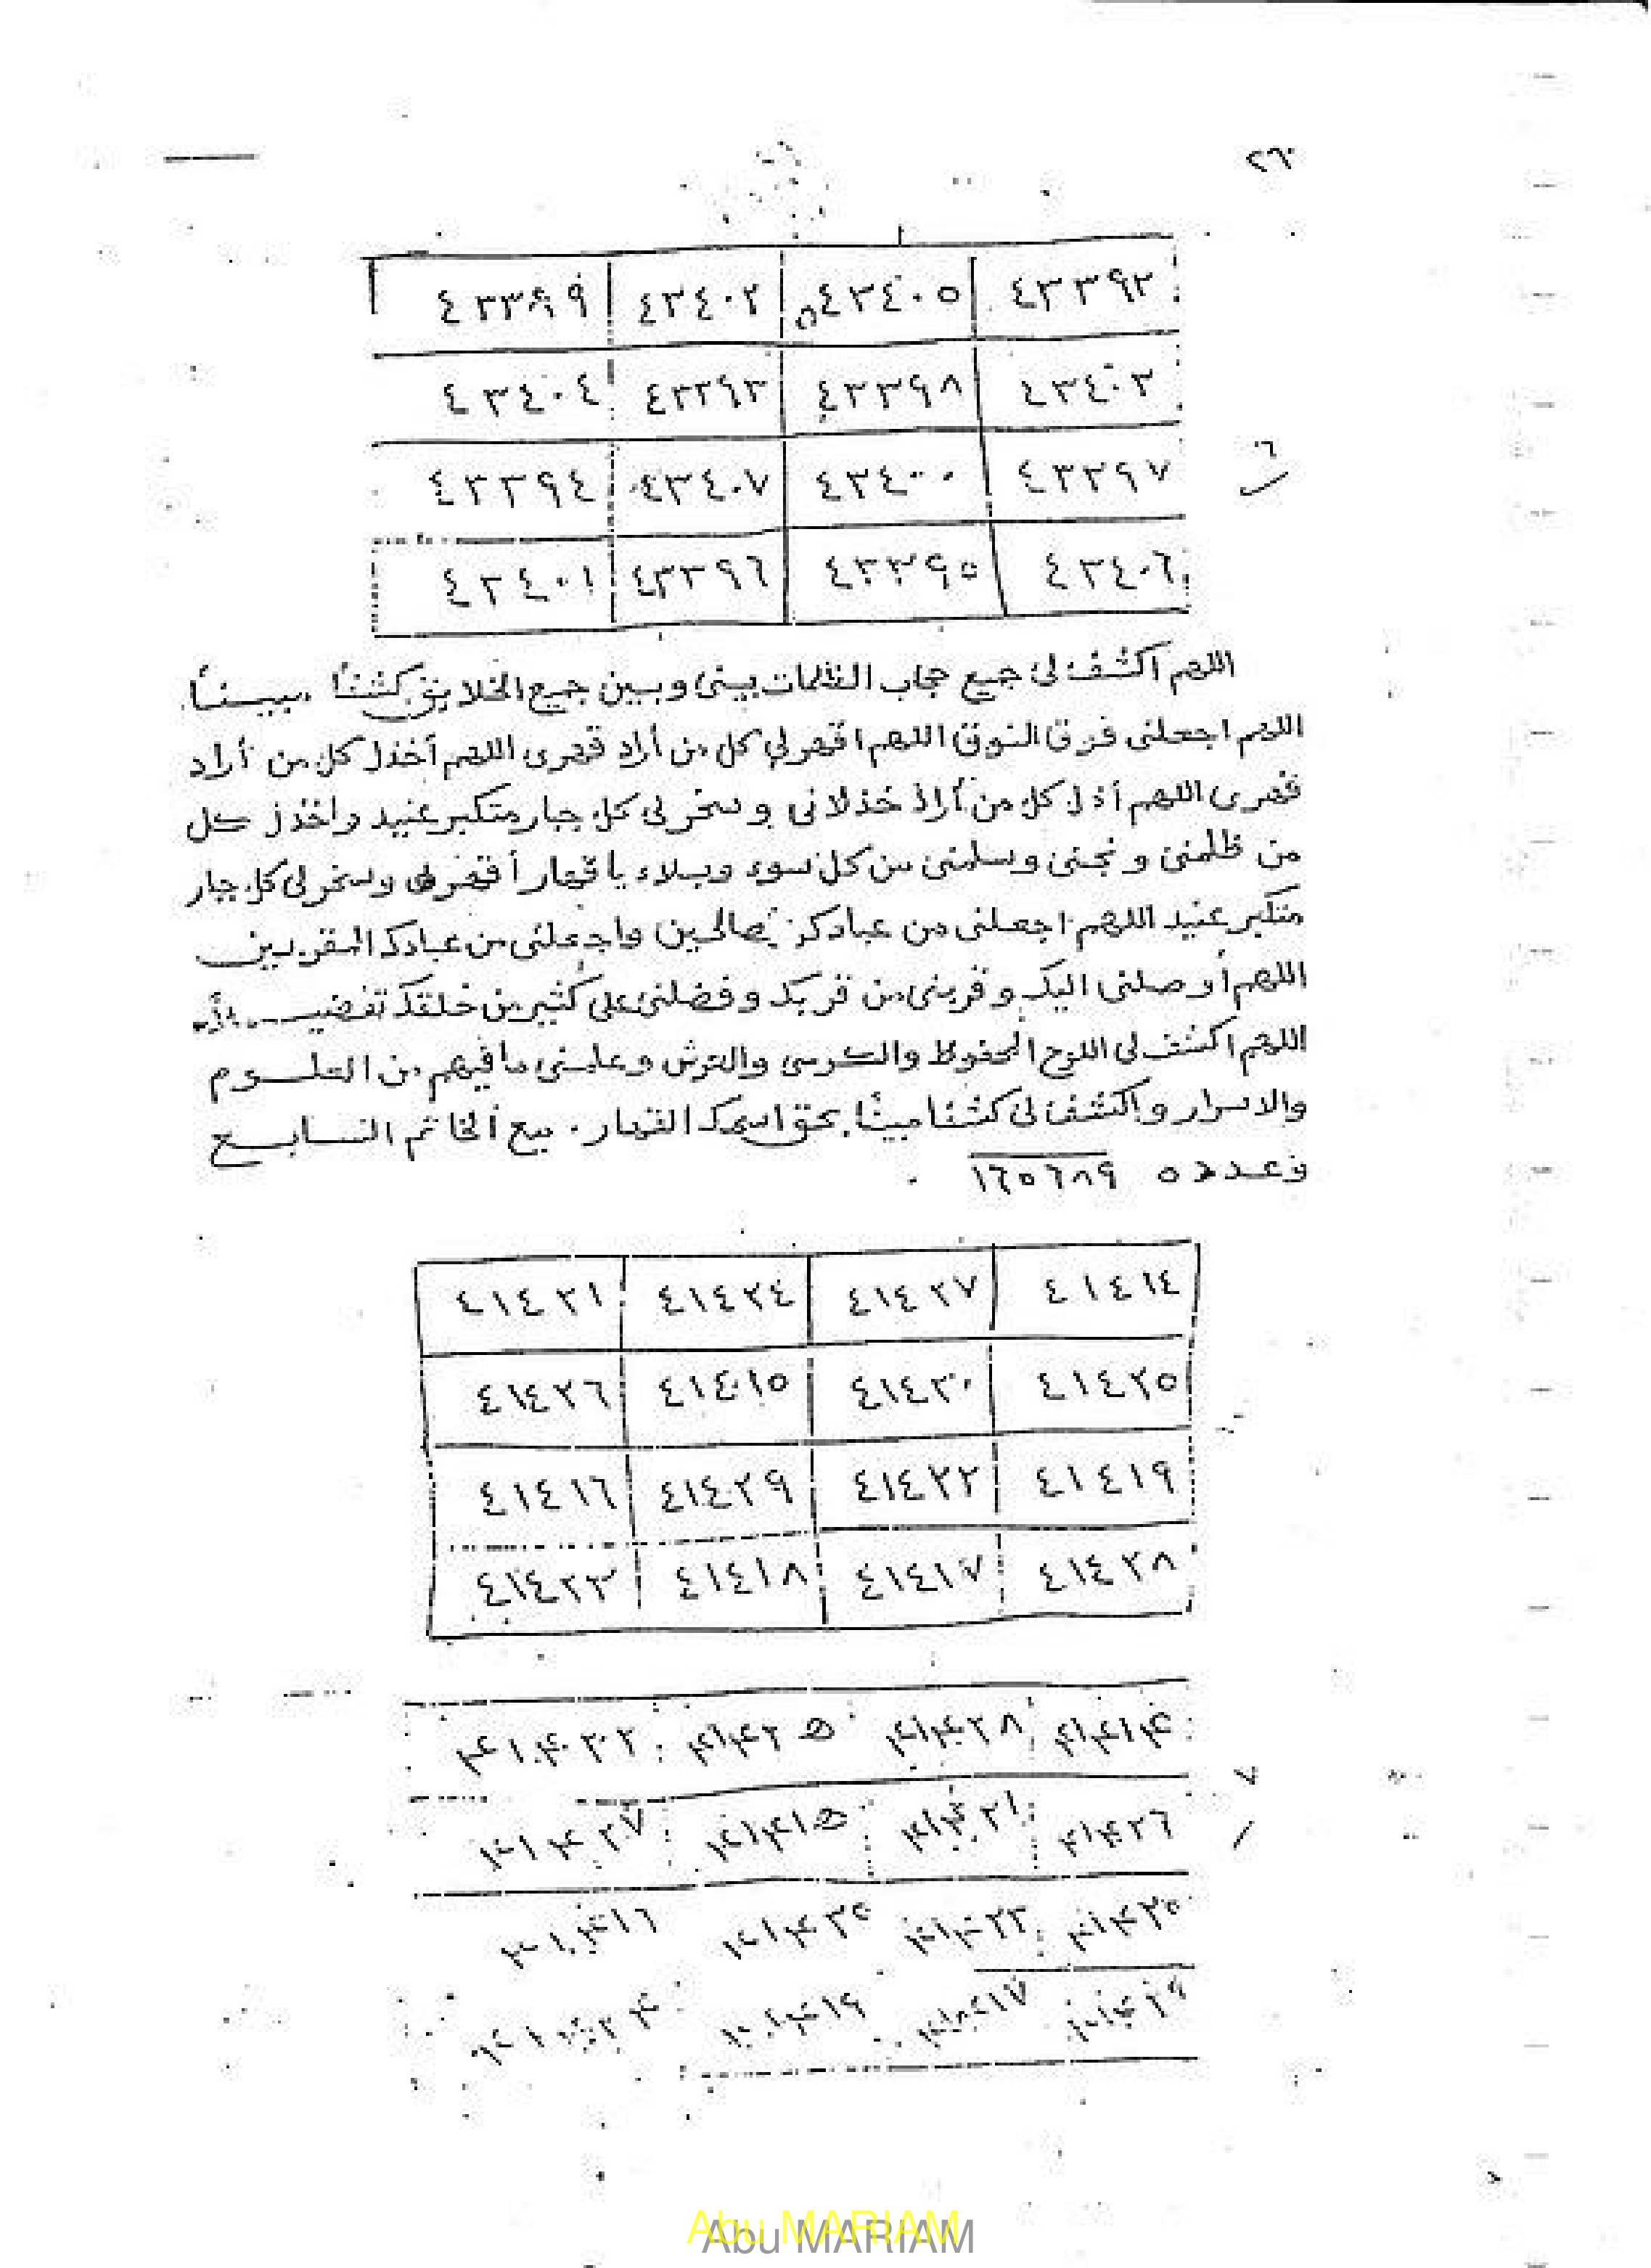 ٢٦
٤٣٣٩٩ ٤٣٤٠٢ ٤٣٤٠٥ ٤٣٣٩٢
٤٣٤٠٤ ٤٣٣٩٣ ٤٣٣٩٨ ٤٣٤٠٣
٤٣٣٩٤ ٤٣٤٠٧ ٤٣٤٠٠ ٤٣٣٩٧
٤٣٤٠١ ٤٣٣٩٦ ٤٣٣٩٥ ٤٣٤٠٦
٦
اللهم اكشف لى جميع حجاب الظلمات بينى وبين جميع الخلايق كشفا مبيناً
اللهم اجعلنى فوق الفوق اللهم اقهر لي كل من أراد قهرى اللهم أخذل كل من أراد
قهرى اللهم أذل كل من أراد خذلانى وسخر لى كل جبار متكبر عنيد واخذل كل
من ظلمنى ونجنى وسلمنى من كل سوء وبلاء يا قهار أقهر وسخر لى كل جبار
متكبر عنيد اللهم اجعلنى من عبادك الصالحين واجعلنى من عبادك المقربين
اللهم أوصلنى اليك وقربنى من قربك وفضلنى على كثير من خلقك تفضيلاً
اللهم اكشف لى اللوح المحفوظ والكرسى والعرش وعلمنى ما فيهم من العلوم
والاسرار واكشف لى كشفا مبينًا بحق اسمك القهار . مع الخاتم السابع
وعدده ١٦٥٦٨٩ .
٤١٤٢١ ٤١٤٢٤ ٤١٤٢٧ ٤١٤١٤
٤١٤٢٦ ٤١٤١٥ ٤١٤٢٠ ٤١٤٢٥
٤١٤١٦ ٤١٤٢٩ ٤١٤٢٢ ٤١٤١٩
٤١٤٢٣ ٤١٤١٨ ٤١٤١٧ ٤١٤٢٨
٤١٤٢٥ ٤١٤٢٨ ٤١٤١٤
٤١٤٢٧ ٤١٤١٥ ٤١٤٢١ ٤١٤٢٦
٧
٤١٤١٦ ٤١٤٢٣
٤١٤١٧
Abu MARIAM